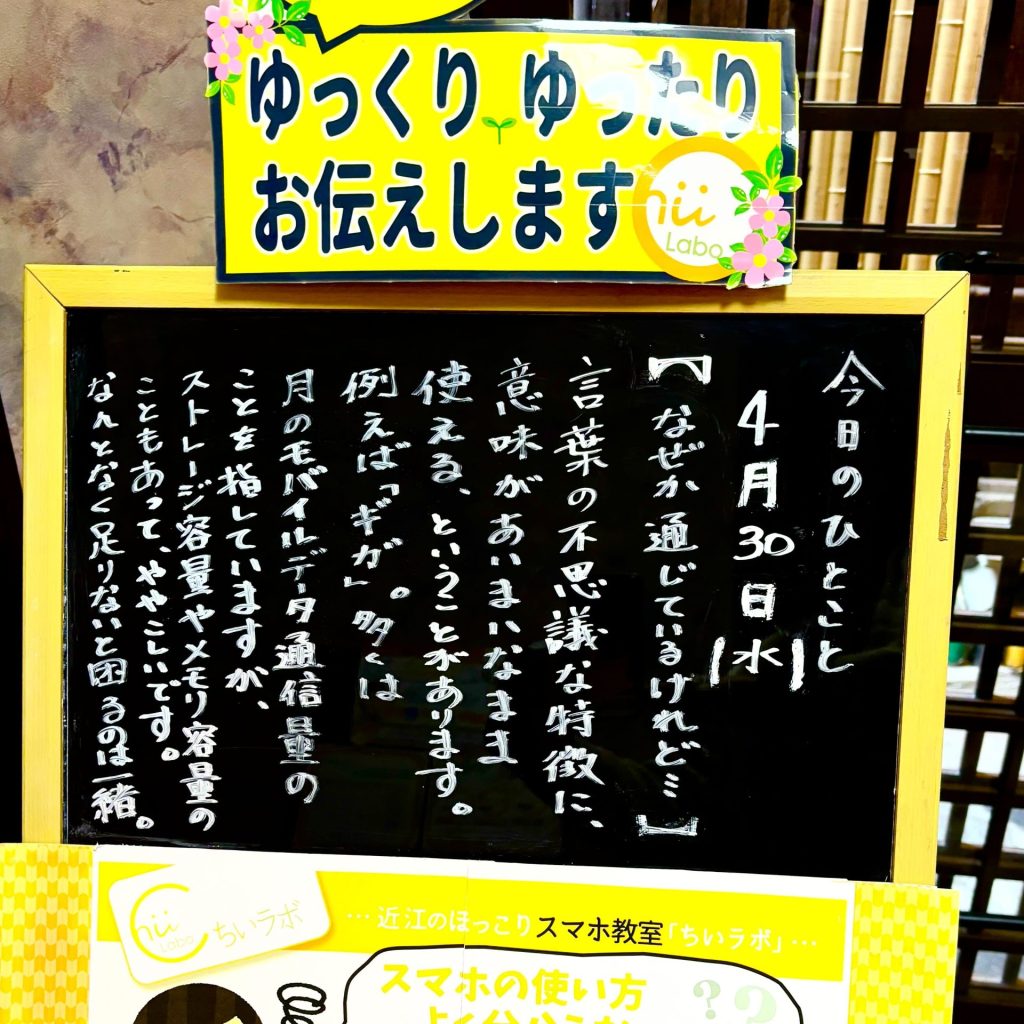 ゆっくり ゆったり
お伝えします
hii
Labo
今日のひとこと
4月30日(水)
【なぜか通じているけれど…】
言葉の不思議な特徴に、
意味があいまいなまま
使える、ということがあります。
例えば「ギガ」。多くは
月のモバイルデータ通信量の
ことを指していますが、
ストレージ容量やメモリ容量の
こともあって、ややこしいです。
なんとなく足りないと困るのは一緒。
Chii
Labo
ちいラボ
…近江のほっこりスマホ教室「ちいラボ」…
スマホの使い方
??